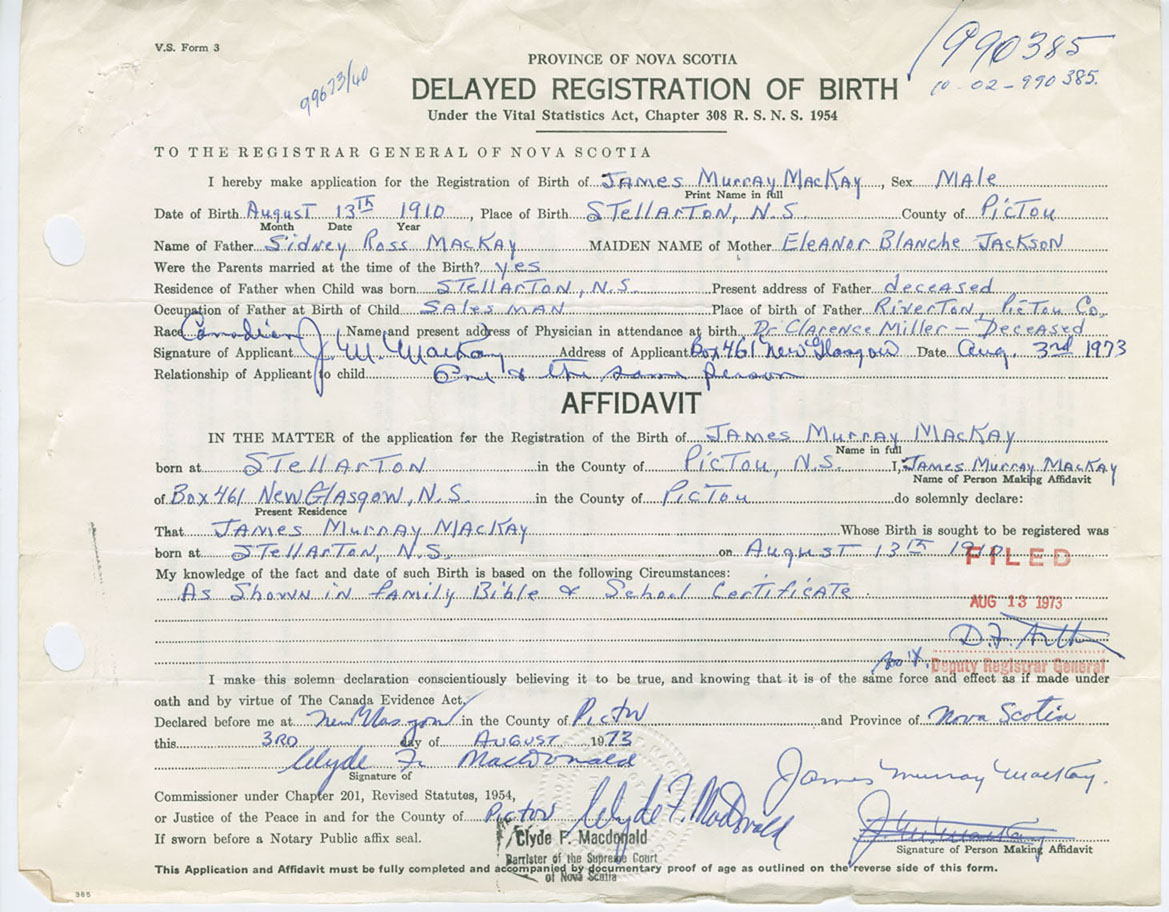 V.S. Form 3
990385
10-02-990385.
99673/40
PROVINCE OF NOVA SCOTIA
DELAYED REGISTRATION OF BIRTH
Under the Vital Statistics Act, Chapter 308 R. S. N. S. 1954
TO THE REGISTRAR GENERAL OF NOVA SCOTIA
I hereby make application for the Registration of Birth of James Murray MacKay, Sex Male
Print Name in full
Date of Birth August 13th 1910, Place of Birth Stellarton, N.S. County of Pictou
Month Date Year
Name of Father Sidney Ross MacKay MAIDEN NAME of Mother Eleanor Blanche Jackson
Were the Parents married at the time of the Birth? yes
Residence of Father when Child was born Stellarton, N.S. Present address of Father deceased
Occupation of Father at Birth of Child Salesman Place of birth of Father Riverton, Pictou Co.
Race Canadian Name and present address of Physician in attendance at birth Dr Clarence Miller - Deceased
Signature of Applicant J. M. MacKay Address of Applicant Box 461 New Glasgow Date Aug. 3rd 1973
Relationship of Applicant to child One & the same person
AFFIDAVIT
IN THE MATTER of the application for the Registration of the Birth of James Murray MacKay
Name in full
born at Stellarton in the County of Pictou, N.S. I, James Murray MacKay
Name of Person Making Affidavit
of Box 461 New Glasgow, N.S. in the County of Pictou do solemnly declare:
Present Residence
That James Murray MacKay Whose Birth is sought to be registered was
born at Stellarton, N.S. on August 13th 1910
FILED
My knowledge of the fact and date of such Birth is based on the following Circumstances:
As Shown in family Bible & School Certificate.
AUG 13 1973
D.F. Arthur
Deputy Registrar General
I make this solemn declaration conscientiously believing it to be true, and knowing that it is of the same force and effect as if made under
oath and by virtue of The Canada Evidence Act,
Declared before me at New Glasgow in the County of Pictou and Province of Nova Scotia
this 3RD day of AUGUST 1973
Clyde F. MacDonald
Signature of
James Murray MacKay.
Commissioner under Chapter 201, Revised Statutes, 1954,
or Justice of the Peace in and for the County of Pictou Clyde F. MacDonald
If sworn before a Notary Public affix seal.
Clyde F. Macdonald
J. M. MacKay
Signature of Person Making Affidavit
Barrister of the Supreme Court
of Nova Scotia
This Application and Affidavit must be fully completed and accompanied by documentary proof of age as outlined on the reverse side of this form.
385